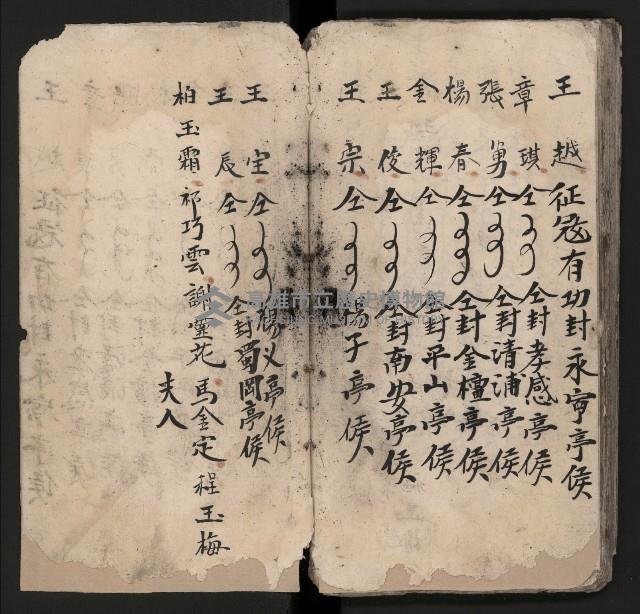 王 越 征寇有功封永寧亭侯
章 琪 仝 封孝感亭侯
張 勇 仝 仝封清浦亭侯
楊 春 仝 仝封金檀亭侯
金 輝 仝 仝封平山亭侯
王 俊 仝 仝封南安亭侯
王 宗 仝 揚子亭侯
王 宝 仝 楊义亭侯
王 辰 仝 仝封蜀岡亭侯
柏玉霜 祁巧雲 謝灵花 馬金定 程玉梅
夫人
高雄市立歷史博物館